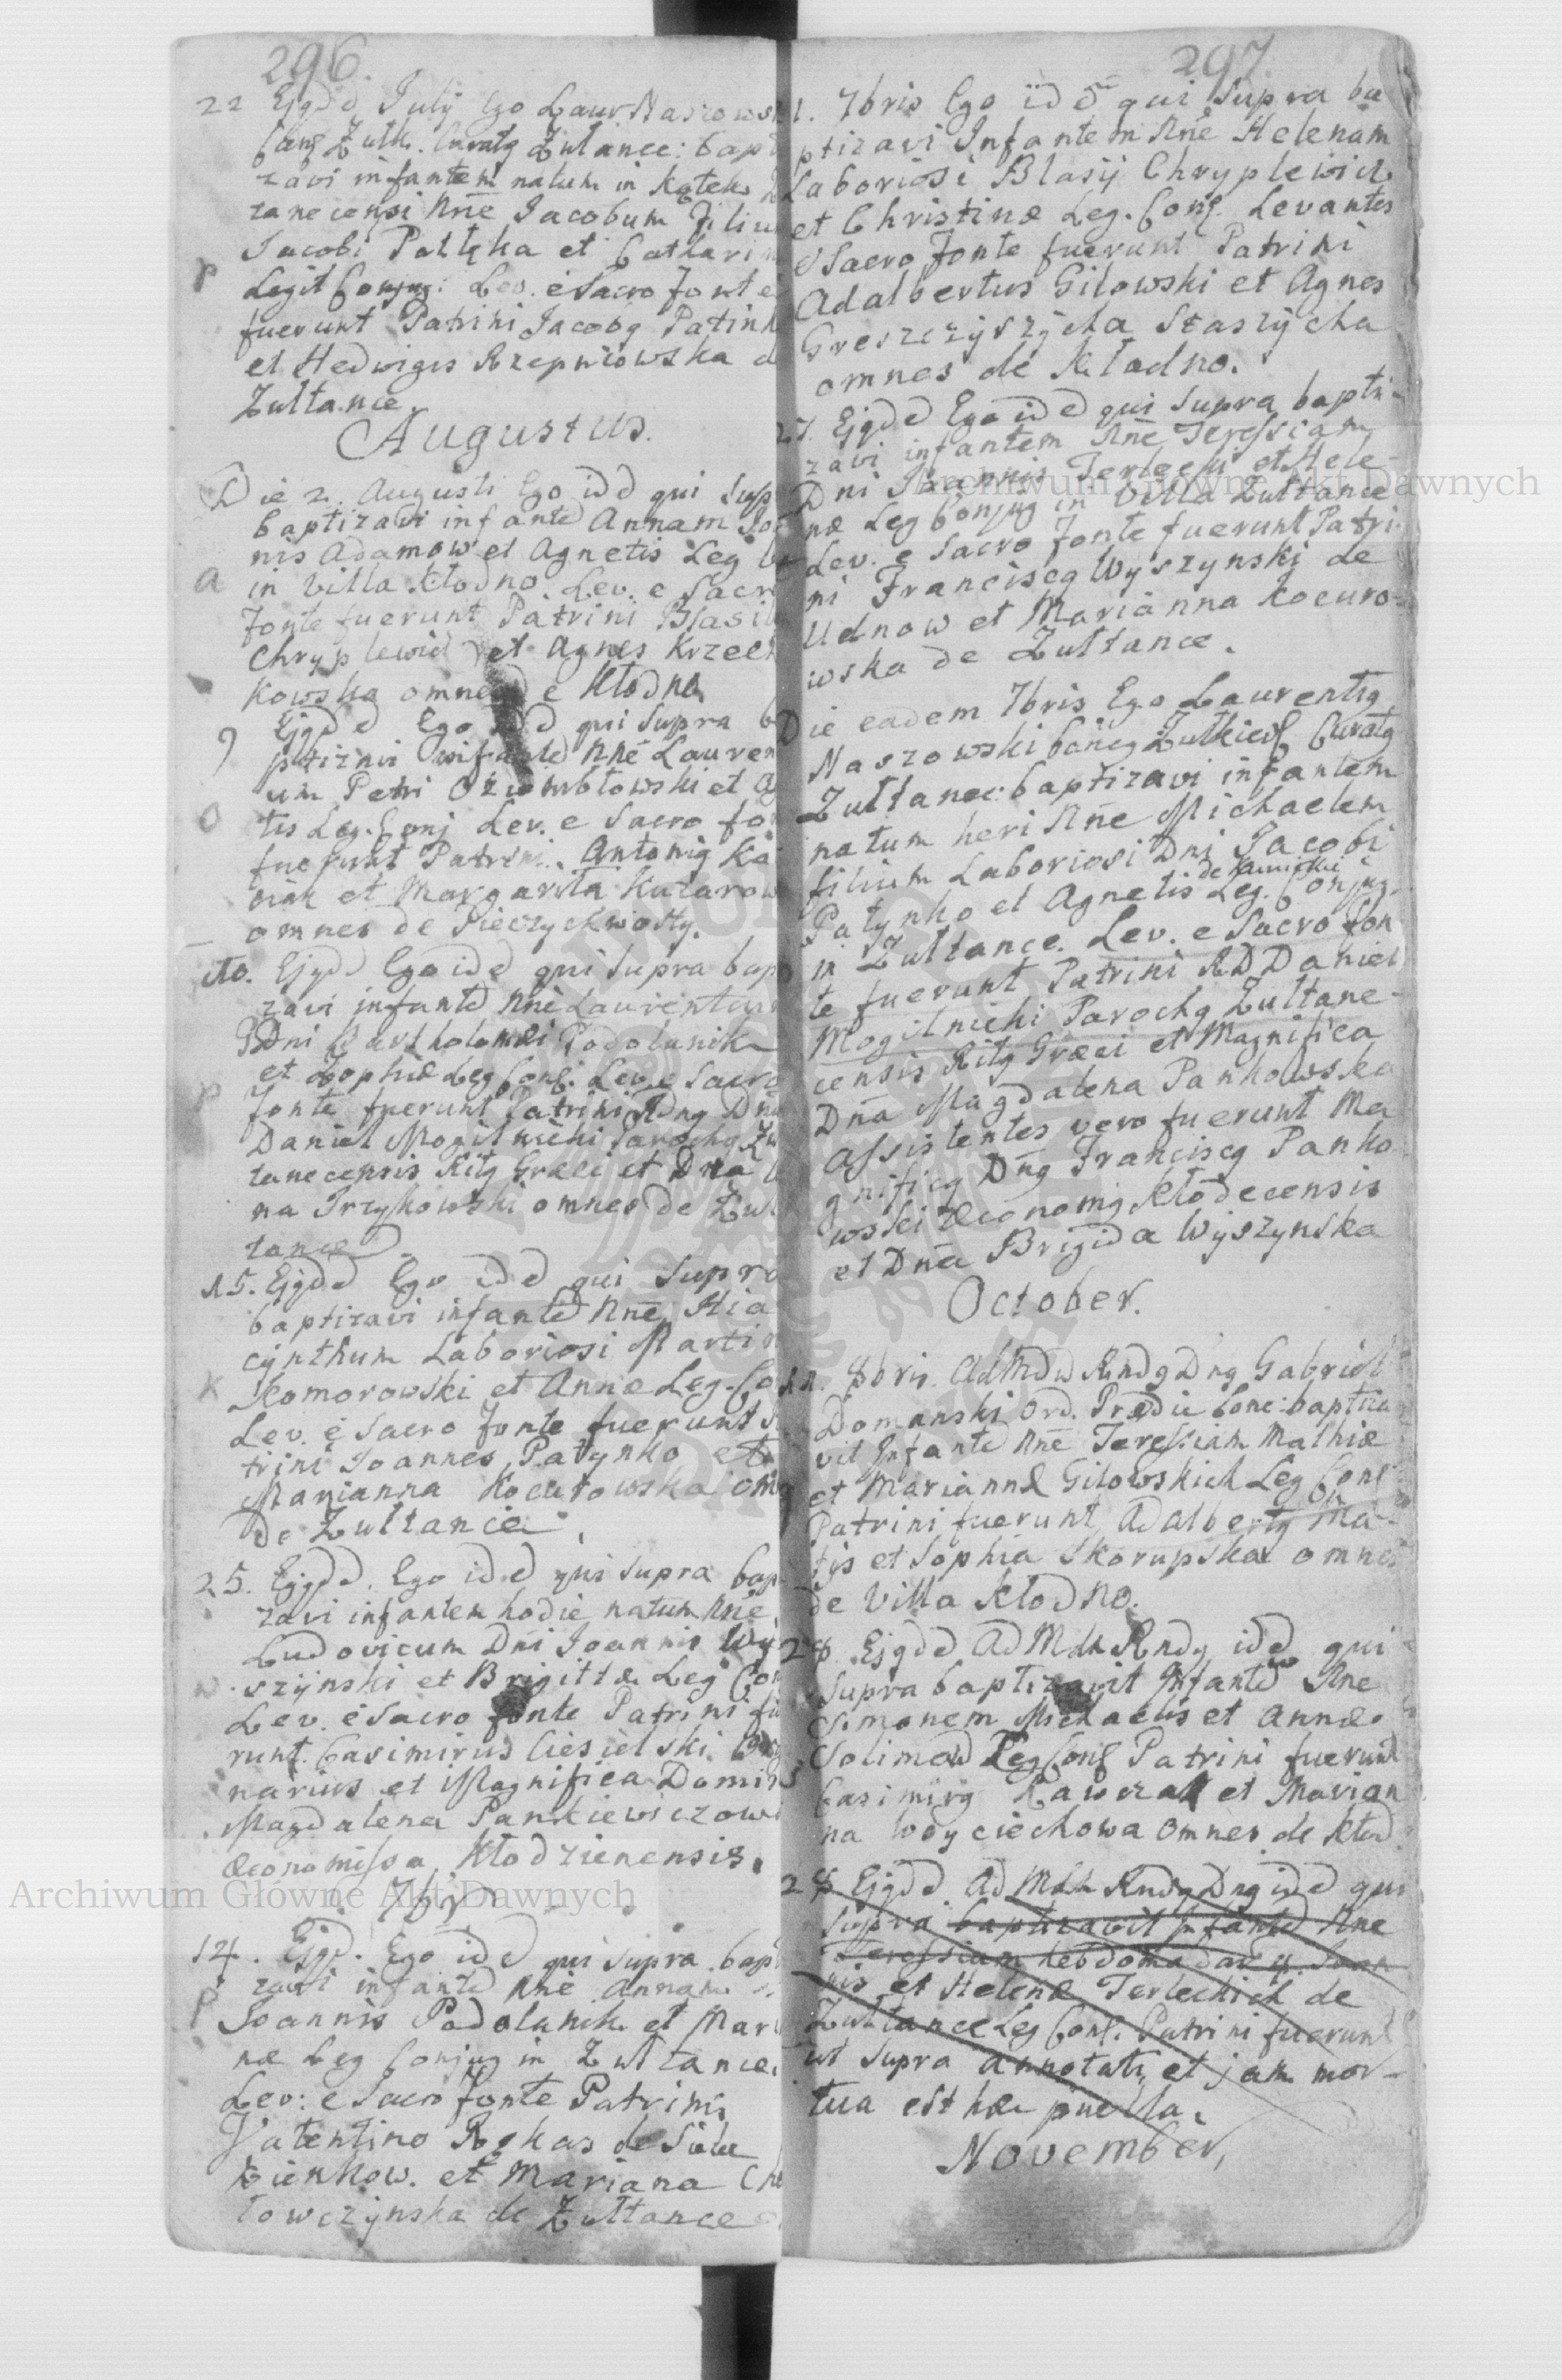 296.
22 Ejgdd July Ego Laur Naszowsk
Canq Zulk. Curatq Zultance: bapt
zavi infantem natum in Kątek
tanecensi Nne Jacobum Filiu
Jacobi Pattęka et Catharin
P Legit Conjug: Lev. e Sacro fonte
fuerunt Patrini Jacobq Patink
et Hedwigis Rzepniowska d
Zultance
Augustus.
Die 2. Augusti Ego idd qui sup
baptizavi infantd Annam Jo
nis Adamow et Agnetis Leg
a in Villa Kłodno. Lev. e Sacr
fonte fuerunt Patrini Blasi
Chryplewicz et Agnes Krzecz
kowska omnes de Kłodno
9 Ejgdd Ego idd qui supra b
ptizavi infantd Nne Lauren
um Petri Oziombłowski et A
O tis Leg. Conj Lev. e Sacro fo
fuerunt Patrini. Antonig Ka
et Margarita Kazarow
omnes de Pieczychwosty.
dto. Ejgdd Ego idd qui supra bap
zavi infantd Nne Laurentiu
Dni Bartholomæi Podolanik
et Zophiæ Leg Conj: Lev. e Sacro
P fonte fuerunt Patrini Rdng Dn
Daniel Mogilnicki Parochg Zu
tanecensis Ritg Græci et Dna
na Trzykowski omnes de Zul
tance
15. Ejgdd Ego idd qui supra
baptizavi infantd Nne Hia
cynthum Laboriosi Martin
K Komorowski et Annæ Leg. Co
Lev. e Sacro fonte fuerunt
trini Joannes Patynko et
Marianna Kocurowska om
de Zultance.
25. Ejgdd. Ego idd qui supra bap
zavi infantem hodie natum Nne
Ludovicum Dni Joannis Wy
w szynski et Brigittæ Leg Con
Lev. e Sacro fonte Patrini fu
runt Casimirus Ciesielski
narius et Magnifica Domin
Magdalena Pankiewiczowi
æconomissa Kłodzienensis.
7br
14. Ejgd. Ego idd qui supra bap
zavi infantd Nne Annam
P Joannis Podolanik et Mari
næ Leg Conjug in Zultance.
Lev: e Sacro fonte Patrini
Valentino Rokas de Siele
Zienkow. et Mariana Ch
łowczynska de Zultance
297
1. 7bris Ego idd qui supra ba
ptizavi Infantem Nne Helenam
Laboriosi Blasij Chryplewicz
et Christinæ Leg. Conj. Levantes
e Sacro fonte fuerunt Patrini
Adalbertus Gilowski et Agnes
Greszczyszycha Staszycha
omnes de Kładno.
27. Ejgdd Ego idd qui supra bapti-
zavi infantem Nne Teressiam
Dni Joannis Terlecki et Hele-
næ Leg Conjug in Villa Zultance
Lev. e Sacro fonte fuerunt Patri-
ni Franciscg Wyszynski de
Udnow et Marianna Kocuro-
wska de Zultance.
Die eadem 7bris Ego Laurentig
Naszowski Cancg Zulkievs Curatg
Zultanec: baptizavi infantem
natum heri Nne Michaelem
filium Laboriosi Dni Jacobi
de Kamionki
Patynko et Agnetis Leg. Conjug.
in Zultance. Lev. e Sacro fon
te fuerunt Patrini RDDaniel
Mogilnicki Parochg Zultane-
censis Ritg Græci et Magnifica
Dna Magdalena Pankowska
assistentes vero fuerunt Ma
gnificg Dng Franciscg Panko
wski Æconomg Kłodecensis
et Dna Brigida Wyszynska
October.
8bris. Admdu Rndg Dng Gabriel
Domanski Ord. Prædic Conc: baptiza
vit Infantd Nne Teressiam Mathiæ
et Mariannæ Gilowskich Leg Conj
Patrini fuerunt Adalbertg Ma-
tys et Sophia Skorupska omnes
de Villa Kłodno.
28 Ejgdd Ad Mdu Rndg idd qui
Supra baptizavit Infantd Nne
Simonem Michaelis et Annæ
Solimow Leg Conj Patrini fuerunt
Casimirg Rawczak et Marian
na Woyciechowa omnes de Kłod
28 Ejgdd Ad Mdu Rndg Dng idd qui
supra baptizavit Infantd Nne
Teressiam hebdomadar. Joan
nis et Helenæ Terleckich de
Zultance Leg Conj. Patrini fuerunt
ut supra annotati et jam mor-
tua est hæc puella.
November,
Archiwum Główne Akt Dawnych
Archiwum Główne Akt Dawnych